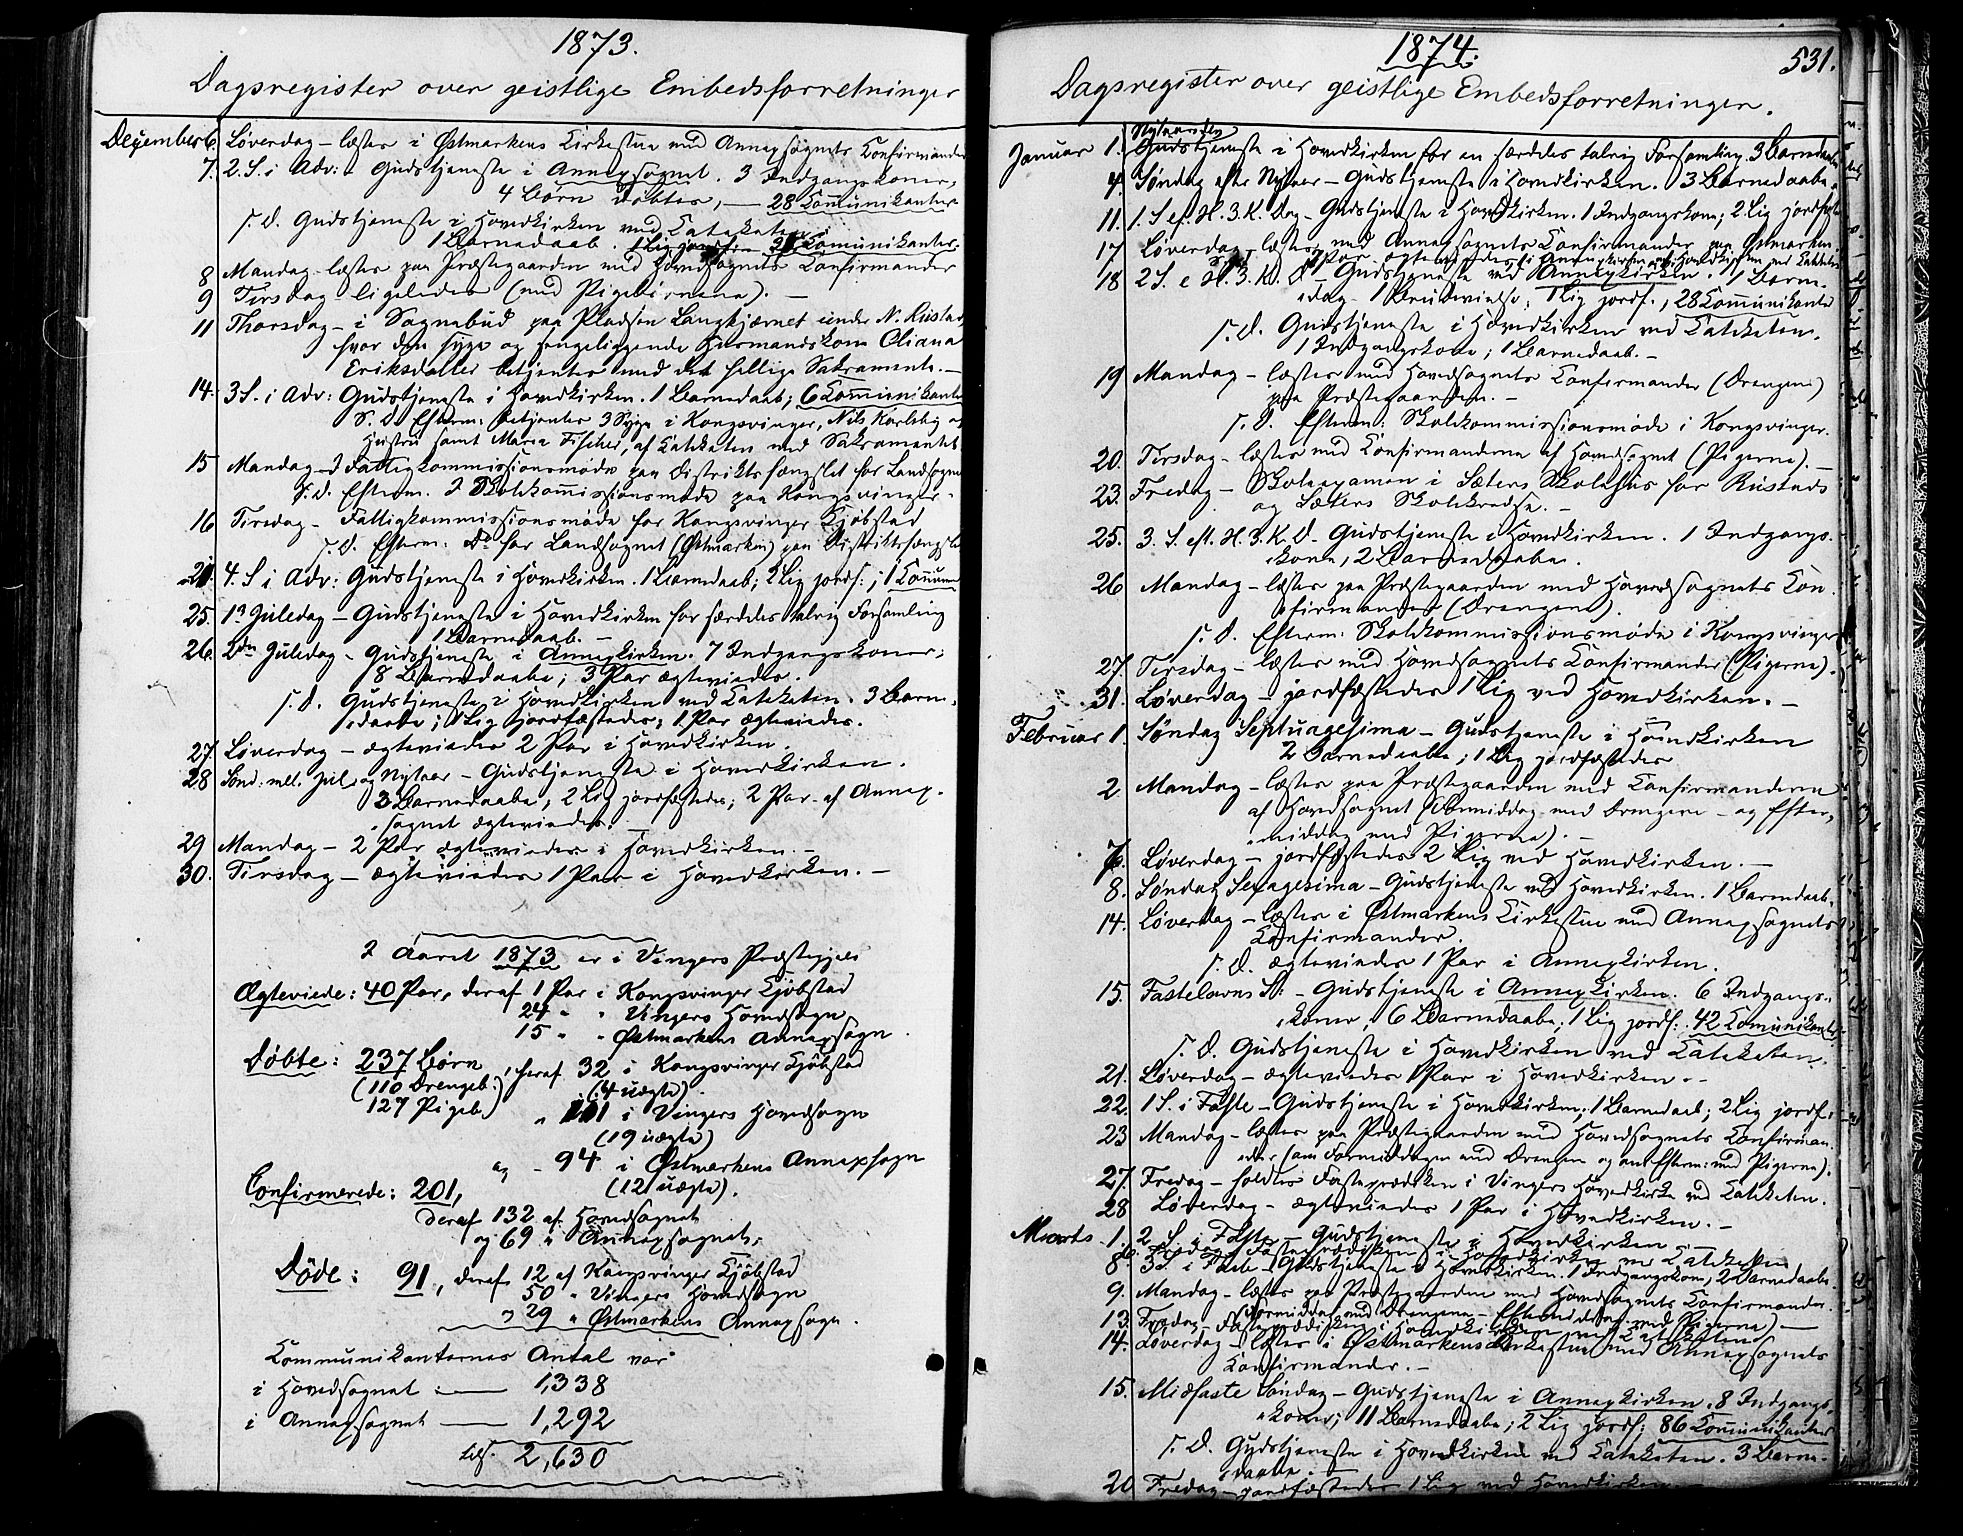 1873.
Dagsregister over geistlige Embedsforretninger
December 6. Løverdag – læstes i Østmarkens Kirkestue med Annexsognets Confirmander
7. 2. S. i Adv: Gudstjeneste i Annexsognet. 3 Indgangskoner,
4 Børn døbtes, — 28 Communikanter
s. D. Gudstjeneste i Hovedkirken ved Catecheten
1 Barnedaab. 1 Lig jordf: Communikanter.
8 Mandag – læstes paa Præstegaarden med Hovedsognets Confirmander
9 Tirsdag ligeledes (med Pigebørnene). —
11 Thorsdag – i Sognebud paa Pladsen Langkjærnet under N. Rustad,
hvor den syge og sengeliggende Huusmandskone Oliana
Eriksdatter betjentes med det hellige Sakramente. —
14. 3 S. i Adv: Gudstjeneste i Hovedkirken. 1 Barnedaab; 6 Communikanter
S. D. Efterm: betjentes 3 Syge i Kongsvinger, Nils Karlsby og
Hustru samt Maria Fischer, af Catecheten med Sakramentet
15 Mandag – I Fattigkommissionsmøde paa Distriktsfængslet for Landsognet
s. D. Efterm. I Skolekommissionsmøde paa Kongsvinger.
16 Tirsdag – Fattigkommissionsmøde for Kongsvinger Kjøbstad
s. D. Efterm: Do for Landsognet (Østmarken) paa Distriktsfængslet
21. 4. S i Adv: Gudstjeneste i Hovedkirken. 1 Barnedaab; 2 Lig jordf:; 1 Commun
25. 1ste Juledag – Gudstjeneste i Hovedkirken for særdeles talrig Forsamling
1 Barnedaab. –
26. 2den Juledag – Gudstjeneste i Annexkirken. 7 Indgangskoner;
8 Barnedaabe; 3 Par ægteviedes.
s. D. Gudstjeneste i Hovedkirken ved Catecheten. 3 Barne-
daabe; 1 Lig jordfæstedes; 1 Par ægteviedes.
27. Løverdag – ægteviedes 2 Par i Hovedkirken.
28 Sønd: mell. Jul og Nytaar – Gudstjeneste i Hovedkirken.
3 Barnedaabe, 2 Lig jordfæstedes; 2 Par af Annex-
sognet ægteviedes. –
29 Mandag – 2 Par ægteviedes i Hovedkirken. –
30. Tirsdag – ægteviedes 1 Par i Hovedkirken. –
I Aaret 1873 er i Vingers Præstegjeld
Ægteviede: 40 Par, deraf 1 Par i Kongsvinger Kjøbstad
24 " " Vingers Hovedsogn
15 " " Østmarkens Annexsogn.
Døbte: 237 Børn, heraf 32 i Kongsvinger Kjøbstad
(110 Drengeb. (4 uægte).
127 Pigeb.) " 111 i Vingers Hovedsogn
(19 uægte)
og – 94 i Østmarkens Annexsogn
(12 uægte).
Confirmerede: 201,
deraf 132 af Hovedsognet
og 69 " Annexsognet.
Døde: 91, deraf 12 af Kongsvinger Kjøbstad
50 " Vingers Hovedsogn
29 " Østmarkens Annexsogn.
Communikanternes Antal var
i Hovedsognet: — 1,338
i Annexsognet — 1,292
tils. 2,630
1874.
531.
Dagsregister over geistlige Embedsforretninger.
Nytaarsdag
Januar 1. Gudstjeneste i Hovedkirken for en særdeles talrig Forsamling. 3 Barnedaabe
4. Søndag efter Nytaar – Gudstjeneste i Hovedkirken. 3 Barnedaabe.
11. 1. S. ef. H. 3. K. Dag – Gudstjeneste i Hovedkirken. 1 Indgangskone; 2 Lig jordfæst
17 Løverdag læstes med Annexsognets Confirmander paa Østmarken.
2 Par ægteviedes i Annexkirken
18 2 S. e H. 3. K. D – Gudstjeneste ved Annexkirken. 1 Barne-
daab – 1 Brudevielse; 1 Lig jordf., 28 Communikanter
s. D. Gudstjeneste i Hovedkirken ved Catecheten.
1 Indgangskone; 1 Barnedaab. –
19 Mandag – læstes med Hovedsognets Confirmander (Drengene)
paa Præstegaarden. –
s. D. Efterm: Skolekommissionsmøde i Kongsvinger.
20. Tirsdag – læstes med Confirmanderne af Hovedsognet (Pigerne). –
23. Fredag – Skoleexamen i Sæters Skolehus for Rustads
og Sæters Skolekredse. –
25. 3. S. eft. H. 3. K. D – Gudstjeneste i Hovedkirken. 1 Indgangs-
kone, 2 Barnedaabe.
26 Mandag – læstes paa Præstegaarden med Hovedsognets Con-
firmander (Drengene).
s. D. Efterm: Skolekommissionsmøde i Kongsvinger
27. Tirsdag – læstes med Hovedsognets Confirmander (Pigerne).
31. Løverdag – jordfæstedes 1 Lig ved Hovedkirken. –
Februar 1. Søndag Septuagesima – Gudstjeneste i Hovedkirken
2 Barnedaabe; 1 Lig jordfæstedes
2 Mandag – læstes paa Præstegaarden med Confirmanderne
af Hovedsognet (Formiddag med Drengene – og Efter-
middag med Pigerne). –
7. Løverdag – jordfæstedes 2 Lig ved Hovedkirken. —
8. Søndag Sexagesima – Gudstjeneste ved Hovedkirken. 1 Barnedaab.
14. Løverdag – læstes i Østmarkens Kirkestue med Annexsognets
Confirmander.
s. D. ægteviedes 1 Par i Annexkirken.
15. Fastelavns S: – Gudstjeneste i Annexkirken. 6 Indgangs-
koner, 6 Barnedaabe; 1 Lig jordf: 42 Comunikanter
s. D. Gudstjeneste i Hovedkirken ved Catecheten.
21. Løverdag – ægteviedes 1 Par i Hovedkirken. –
22. 1 S. i Faste – Gudstjeneste i Hovedkirken. 1 Barnedaab; 2 Lig jordf:
23 Mandag – læstes paa Præstegaarden med Hovedsognets Confirman-
der (om Formiddagen med Drengene og om Efterm: med Pigerne).
27. Fredag – holdtes Fasteprædiken i Vingers Hovedkirke ved Catecheten.
28 Løverdag – ægteviedes 1 Par i Hovedkirken. –
Marts 1. 2. S. i Faste – Gudstjeneste i Hovedkirken —
6. Fredag Fasteprædiken i Hovedkirken ved Catecheten
8. 3 S. i Faste – Gudstjeneste i Hovedkirken. 1 Indgangskone, 2 Barnedaabe.
9. Mandag – læstes paa Præstegaarden med Hovedsognets Confirmander
(Formiddag med Drengene – Eftermiddag med Pigerne) —
13. Fredag – Fasteprædiken i Hovedkirken ved Catecheten
14. Løverdag – læstes i Østmarkens Kirkestue med Annexsognets
Confirmander. –
15. Midfaste Søndag – Gudstjeneste i Annexkirken. 8 Indgangs-
koner; 11 Barnedaabe; 2 Lig jordf: 86 Communikanter
s. D. Gudstjeneste i Hovedkirken ved Catecheten. 3 Barne-
daabe.
20 Fredag – jordfæstedes 1 Lig ved Hovedkirken